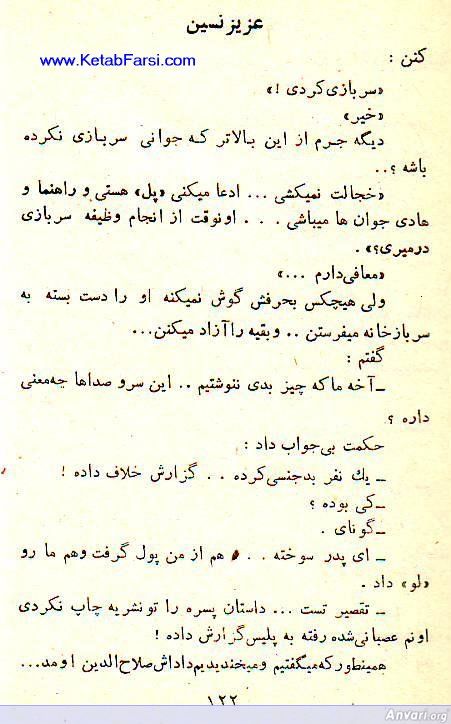 عزیز نسین
www.KetabFarsi.com
کنن :
«سربازی کردی !»
«خیر»
دیگه جرم از این بالاتر که جوانی سربازی نکرده
باشه ؟..
«خجالت نمیکشی ... ادعا میکنی «پل» هستی و راهنما و
هادی جوان ها میباشی . . . اونوقت از انجام وظیفه سربازی
درمیری؟» .
«معافی دارم ...»
ولی هیچکس بحرفش گوش نمیکنه او را دست بسته به
سربازخانه میفرستن .. و بقیه را آزاد میکنن...
گفتم :
ـ آخه ما که چیز بدی ننوشتیم .. این سرو صداها چه معنی
داره ؟
حکمت بی جواب داد :
ـ یك نفر بدجنسی کرده . . گزارش خلاف داده !
ـ کی بوده ؟
ـ گونای .
ـ ای پدر سوخته . . . هم از من پول گرفت وهم ما رو
«لو» داد .
ـ تقصیر تست ... داستان پسره را تو نشریه چاپ نکردی
اونم عصبانی شده رفته به پلیس گزارش داده !
همینطور که میگفتیم و میخندیدیم داداش صلاح الدین اومد...
۱۲۲
Anvari.org